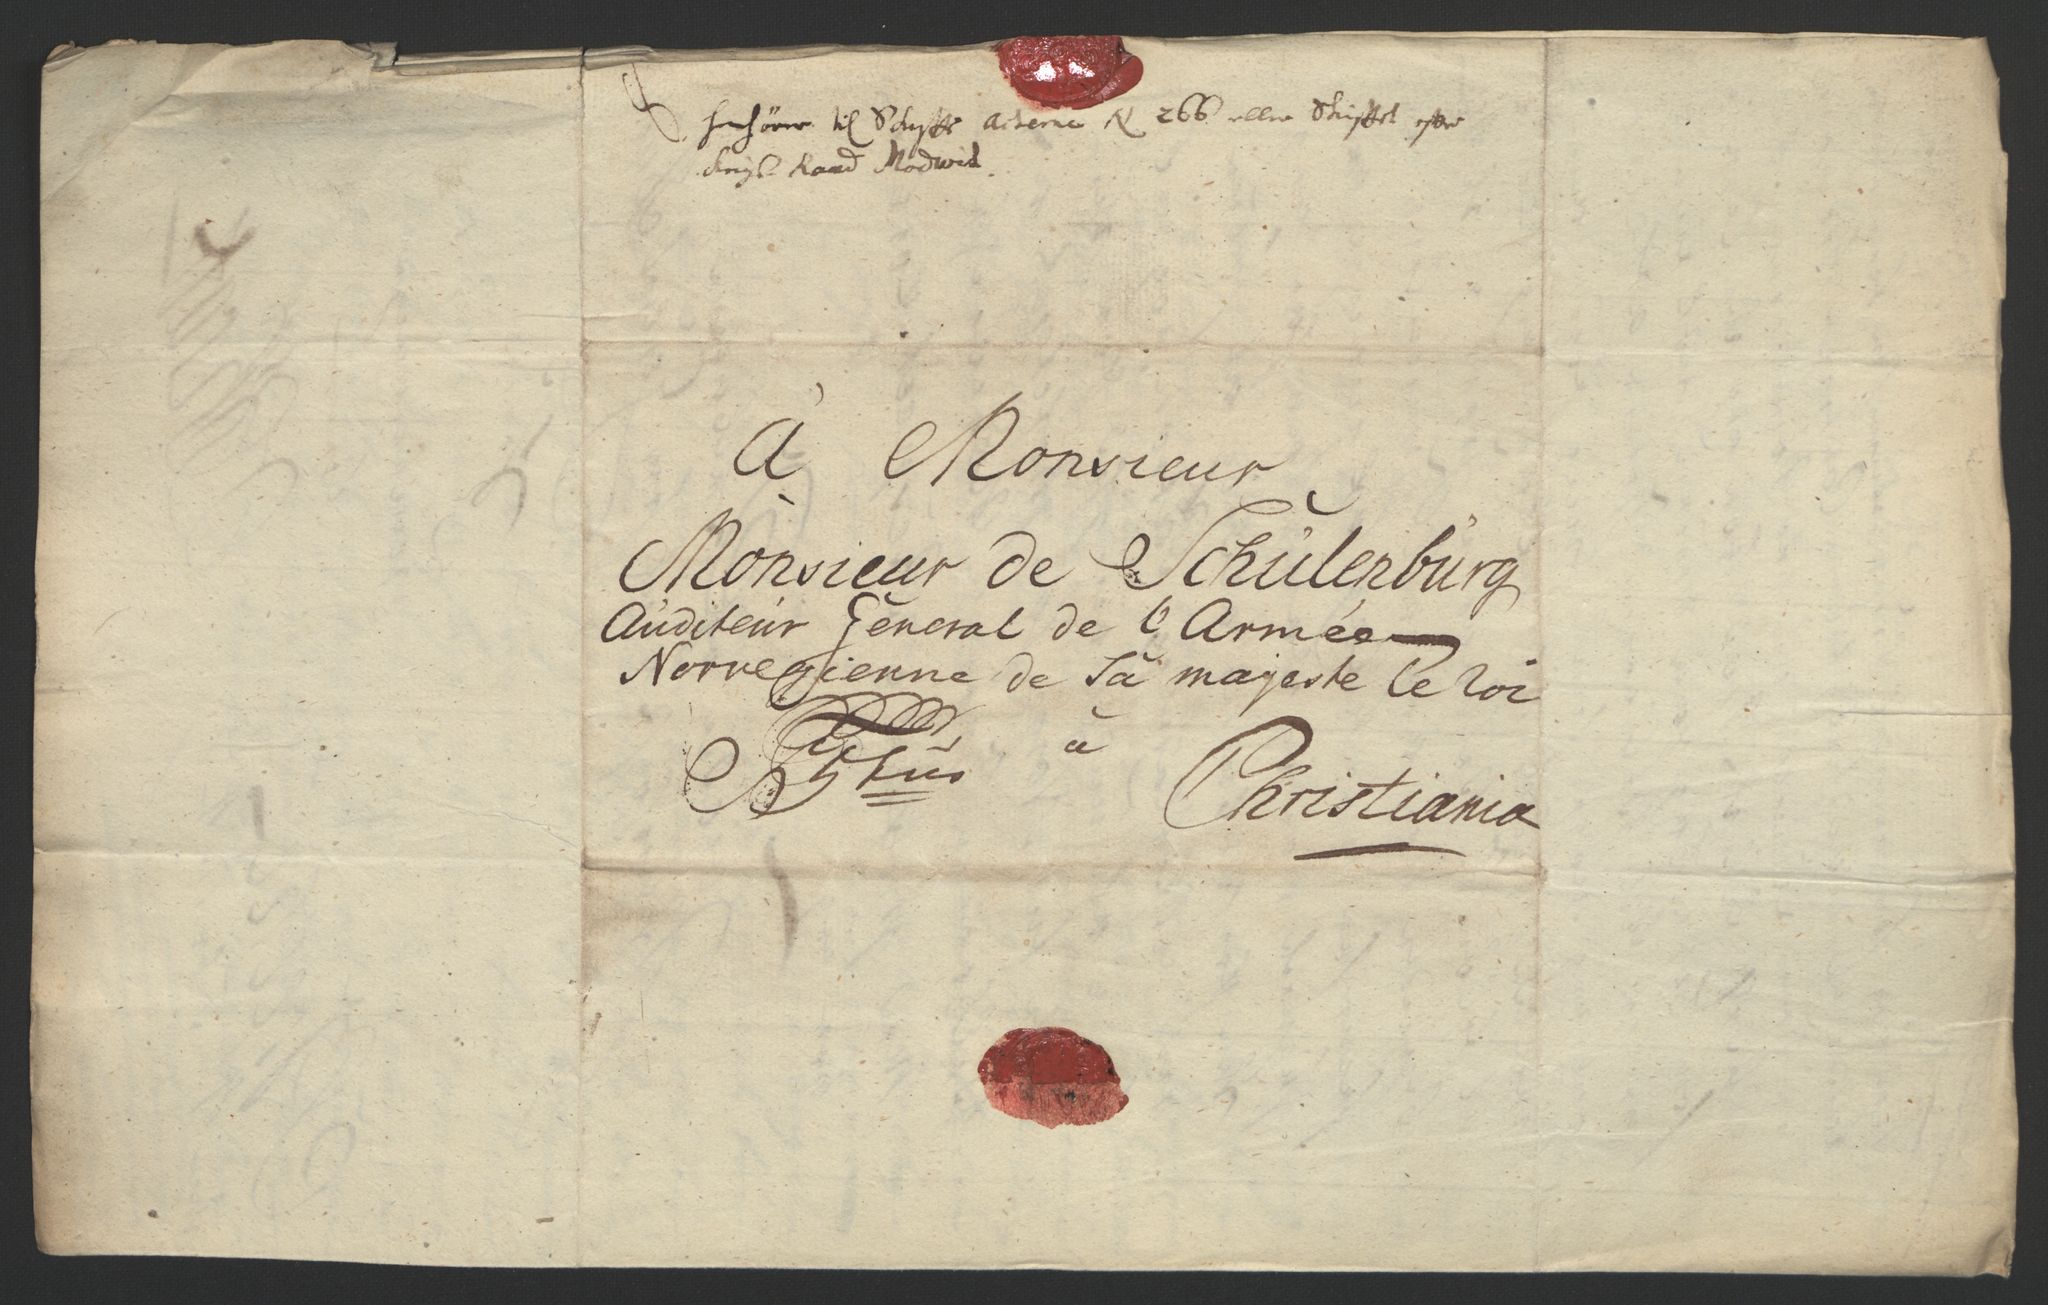 henhörer til Schifts Acterne N 266 eller Skiftet efter
Krigs Raad Modwid.
À Monsieur
Monsieur de Schulenburg
Auditeur General de l'Armée
Norvegienne de Sa majeste le roi
à
Christiania